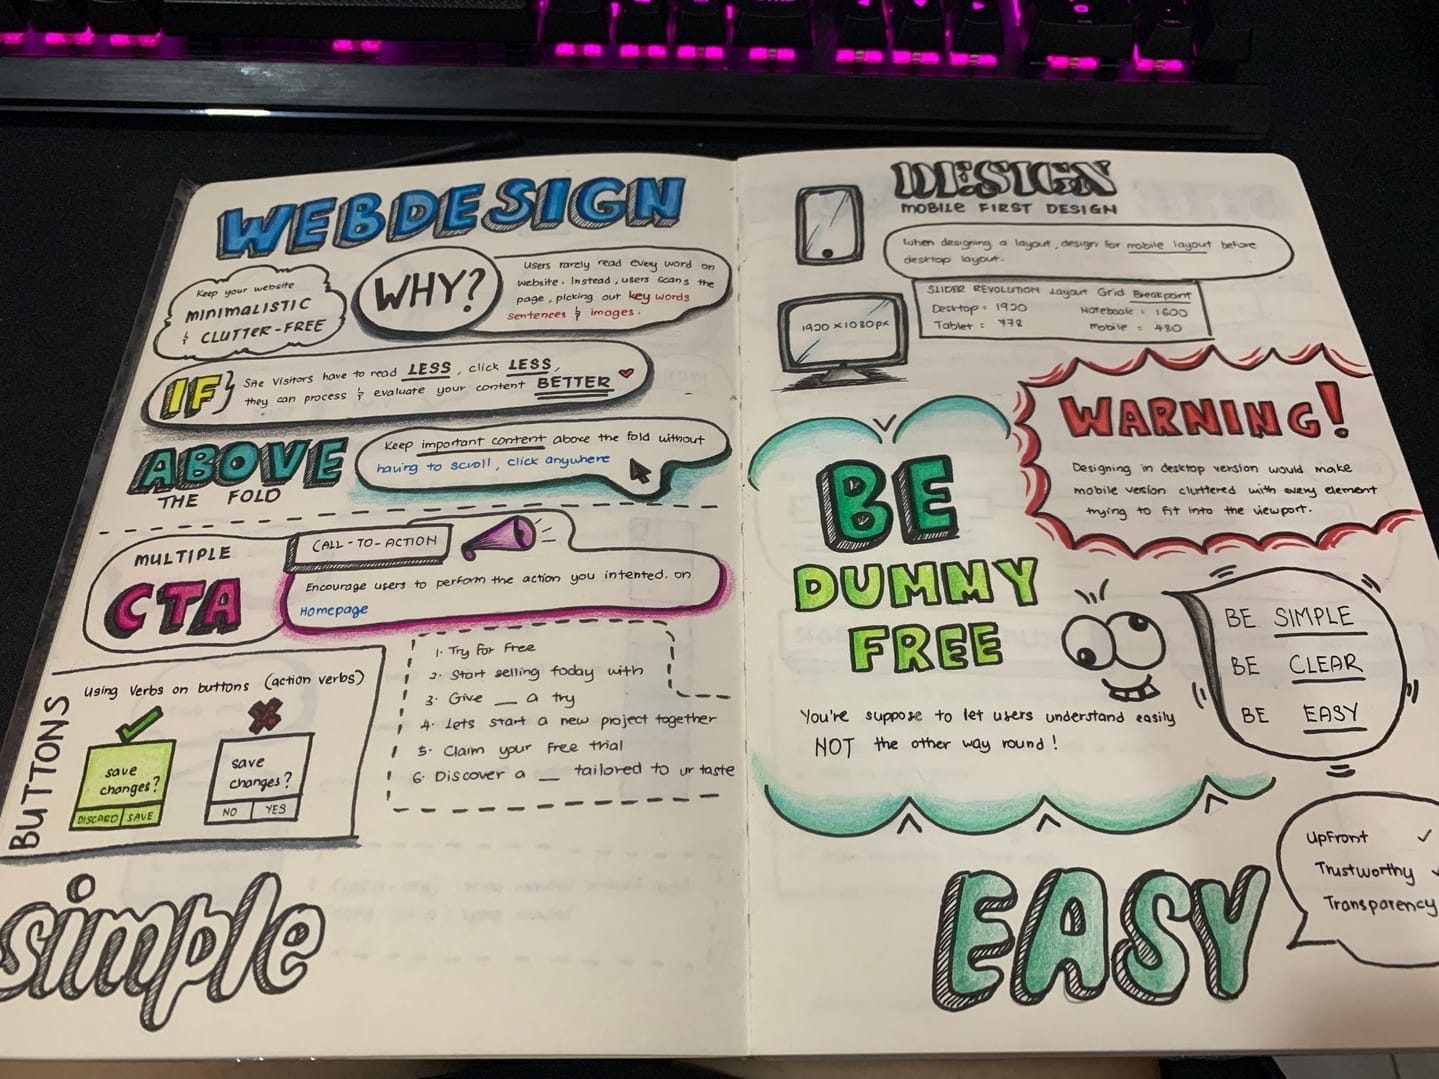 WEBDESIGN
Keep your website
MINIMALISTIC
& CLUTTER-FREE
WHY?
Users rarely read every word on
website. Instead, users scans the
page, picking out key words
sentences & images.
IF
Site Visitors have to read LESS, click LESS,
they can process & evaluate your content BETTER
ABOVE
THE FOLD
Keep important content above the fold without
having to scroll, click anywhere
MULTIPLE
CTA
CALL-TO-ACTION
Encourage users to perform the action you intented. on
Homepage
BUTTONS
Using Verbs on buttons (action verbs)
save
changes?
DISCARD SAVE
save
changes?
NO YES
1. Try for Free
2. Start selling today with
3. Give __ a try
4. Lets start a new project together
5. Claim your Free trial
6. Discover a __ tailored to ur taste
simple
DESIGN
MOBILE FIRST DESIGN
When designing a layout, design for mobile layout before
desktop layout.
1920 x 1080px
SLIDER REVOLUTION Layout Grid Breakpoint
Desktop : 1920 Notebook : 1600
Tablet : 778 Mobile : 480
WARNING!
Designing in desktop version would make
mobile version cluttered with every element
trying to fit into the viewport.
BE
DUMMY
FREE
You're suppose to let users understand easily
NOT the other way round!
BE SIMPLE
BE CLEAR
BE EASY
EASY
UpFront
Trustworthy
Transparency